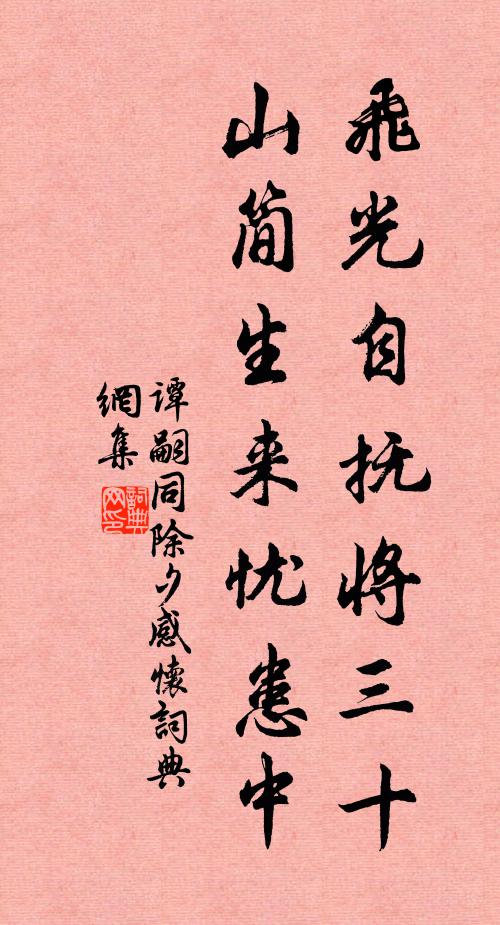 飛光自抚将三十
山简生来忧患中
谭嗣同除夕感懷詞典
網集
詞典网印